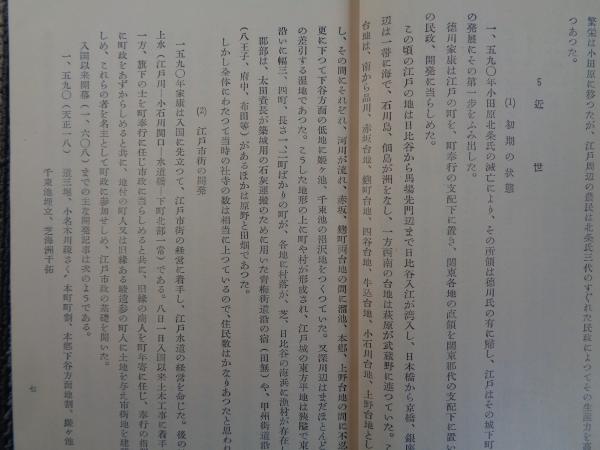 繁栄は小田原に移つたが、江戸周辺の農民は北条氏三代のすぐれた民政によつてその生産力を高
つあつた。
5 近世
(1) 初期の状態
一、五九〇年小田原北条氏の滅亡により、その所領は徳川氏の有に帰し、江戸はその城下町
の発展にその第一歩をふみ出した。
徳川家康は江戸の町を、町奉行の支配下に置き、関東各地の直領を関東郡代の支配下に置い
の民政、開発に当らしめた。
この頃の江戸の地は日比谷から馬場先門辺まで日比谷入江が湾入し、日本橋から京橋、銀座
辺は一帯に海で、石川島、佃島が洲をなし、一方西南の台地は萩原が武蔵野に連つていた。こ
台地は、南から品川、赤坂台地、麹町台地、四谷台地、牛込台地、小石川台地、上野台地とし
し、その間にそれぞれ、河川が流れ、赤坂、麹町両台地の間に溜池、本郷、上野台地の間に不忍
更に下つて下谷方面の低地に姫ヶ池、千束池の沼沢地をつくつていた。又深川辺はまだほとんど
の差引する湿地であつた。こうした地形の上に町や村が形成され、江戸城の東方平地は狭隘で東
沿いに幅三、四町、長さ一、二町ばかりの町が、各地に村落が、芝、日比谷の海浜に漁村が存在し
郡部は、太田資長が築城用の石灰運搬のために用いた青梅街道沿の宿(田無)や、甲州街道沿
(八王子、府中、布田等)があるほかは原野と田畑であつた。
しかし全体にわたつて当時の社寺の数は相当に上つているので、住民数はかなりあつたと思われ
(2) 江戸市街の開発
一五九〇年家康は入国に先立つて、江戸市街の経営に着手し、江戸水道の経営を命じた。後の
上水(江戸川―小石川関口―水道橋―下町北部一帯)である。八日一日入国以来土木工事に着手
一方、旗下の士を町奉行に任じ市政に当らしめると共に、旧縁の商人を町年寄に任じ、奉行の指
に町政をあずからしめると共に、地付の町人又は旧縁ある畯遺参の町人に土地を与え市街地を建
しめ、これらの者を名主として町政に参加せしめ、江戸市政の基礎を開いた。
入国以来開幕(一、六〇八)までの主な開発記事は次のようである。
一、五九〇(天正一八) 道三堀、小名木川疏さく、本町町割、本郷下谷方面地割、姫ヶ池
千束池埋立、芝海洲干拓
七